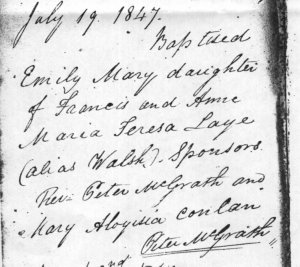 July 19 1847.
Baptised
Emily Mary daughter
of Francis and Anne
Maria Teresa Laye
(alias Walsh). Sponsors.
Rev. Peter McGrath and
Mary Aloyisia conlan.
Peter McGrath